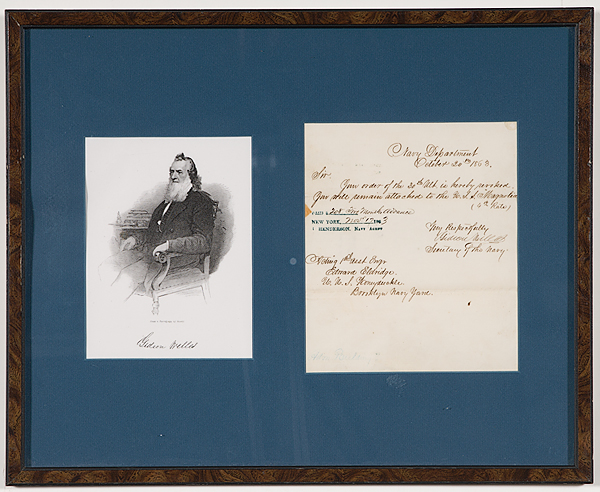 Gideon Welles
Navy Department
October 20th 1863.
Sir
Your order of the 30th Ult. is hereby revoked.
You will remain attached to the U.S.S. Magnolia
(4th Rate)
Very Respectfully
Gideon Welles
Secretary of the Navy
PAID $
NEW YORK, Nov 17 1863
HENDERSON, Navy Agent
Acting 1st Asst. Engr
Edward Eldridge
U.S.S. Honeysuckle
Brooklyn Navy Yard.